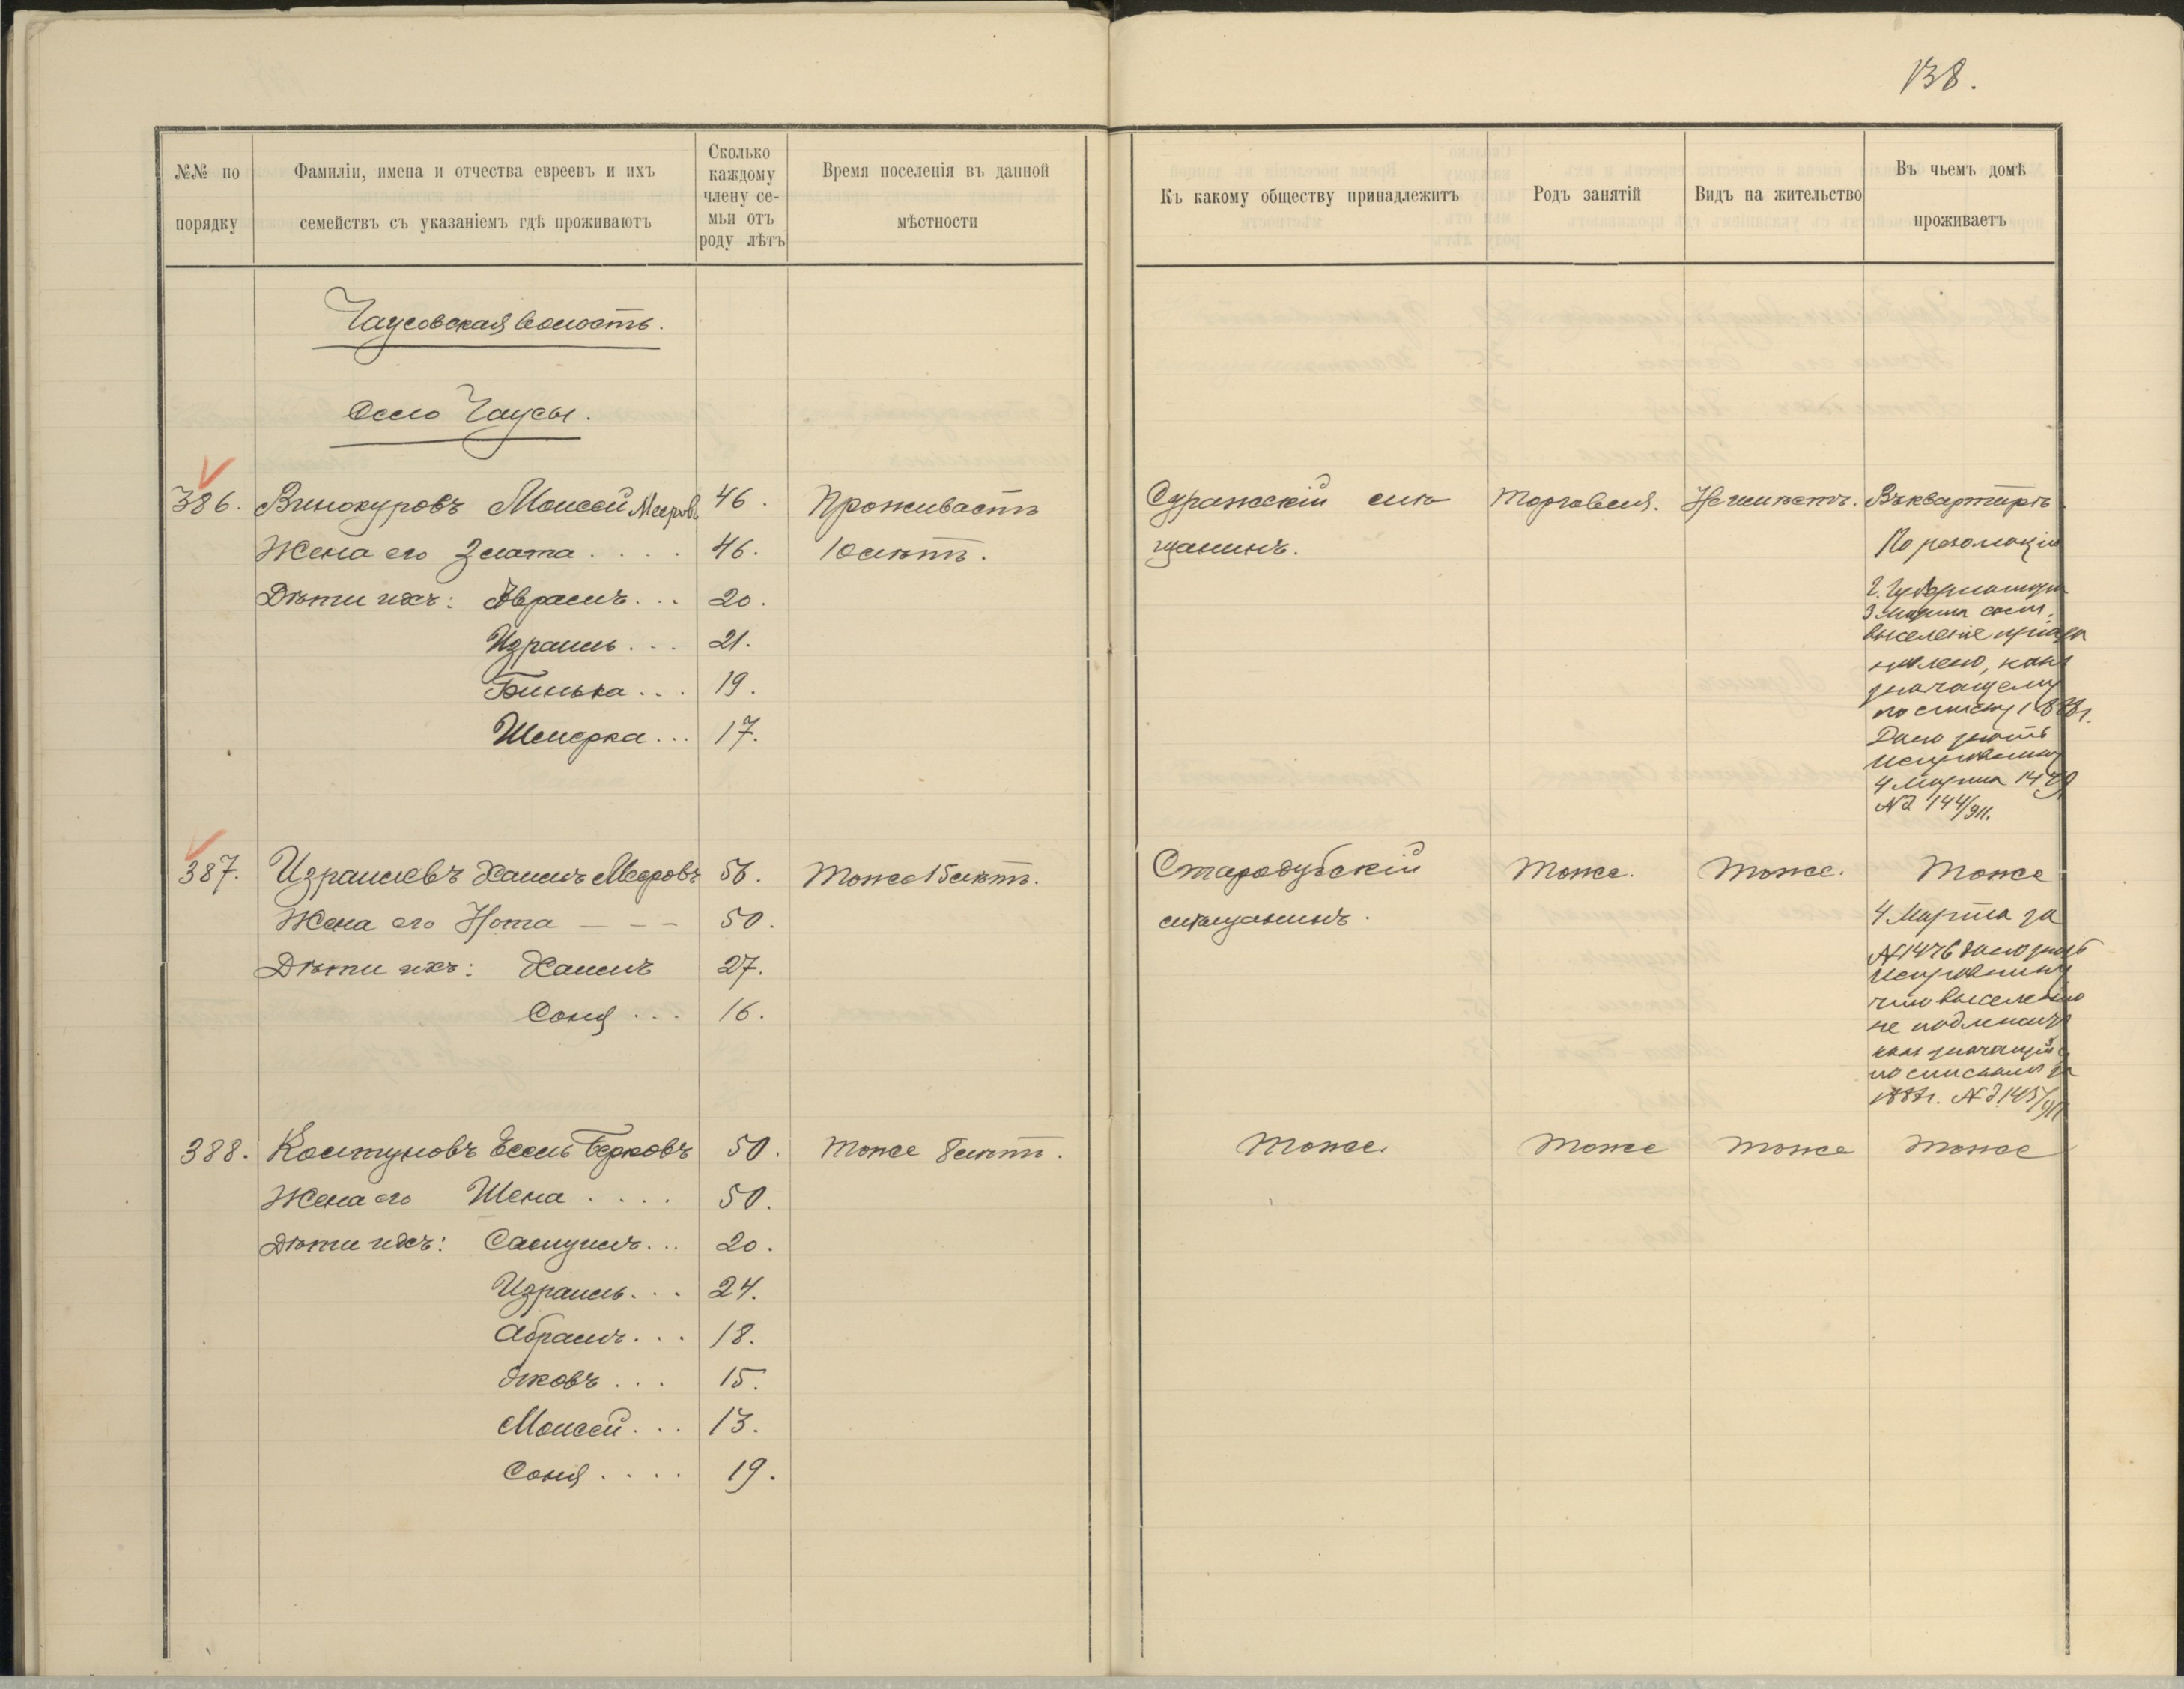 138.
№№ по
порядку
Фамиліи, имена и отчества евреевъ и ихъ
семействъ съ указаніемъ гдѣ проживаютъ
Сколько
каждому
члену се-
мьи отъ
роду лѣтъ
Время поселенія въ данной
мѣстности
Къ какому обществу принадлежитъ
Родъ занятій
Видъ на жительство
Въ чьемъ домѣ
проживаетъ
Чаусовская волость.
Село Чаусы.
386. Винокуровъ Моисей Мееров. 46. Проживаетъ Суражскій мѣ- Торговля. Неимѣетъ. Въ квартирѣ
Жена его Злата .... 46. 10 лѣтъ. щанинъ.
Дѣти ихъ: Абрамъ... 20.
Израиль... 21.
Бинька... 19.
Шмерка... 17.
По резолюціи
Г. Губернатора
3 Марта сост.
выселеніе
как
значащему
по списку
Дано знать
Исправнику
4 Марта
№ 2 144/911.
387. Израилевъ Хаимъ Меоровъ 56. Тоже 15 лѣтъ. Стародубскій Тоже. Тоже. Тоже
Жена его Нота - - - 50. мѣщанинъ.
Дѣти ихъ: Хаимъ 27.
Соня ... 16.
4 Марта за
№ 1476 дано знать
Исправнику
что выселенію
не подлежитъ
какъ значащійся
по спискамъ за
№ 2 145/911
388. Колтуновъ Есель Берковъ 50. Тоже 8 лѣтъ. Тоже. Тоже Тоже Тоже
Жена его Шена .... 50.
Дѣти ихъ: Самуилъ... 20.
Израиль... 24.
Абрамъ... 18.
Яковъ... 15.
Моисей... 13.
Соня.... 19.